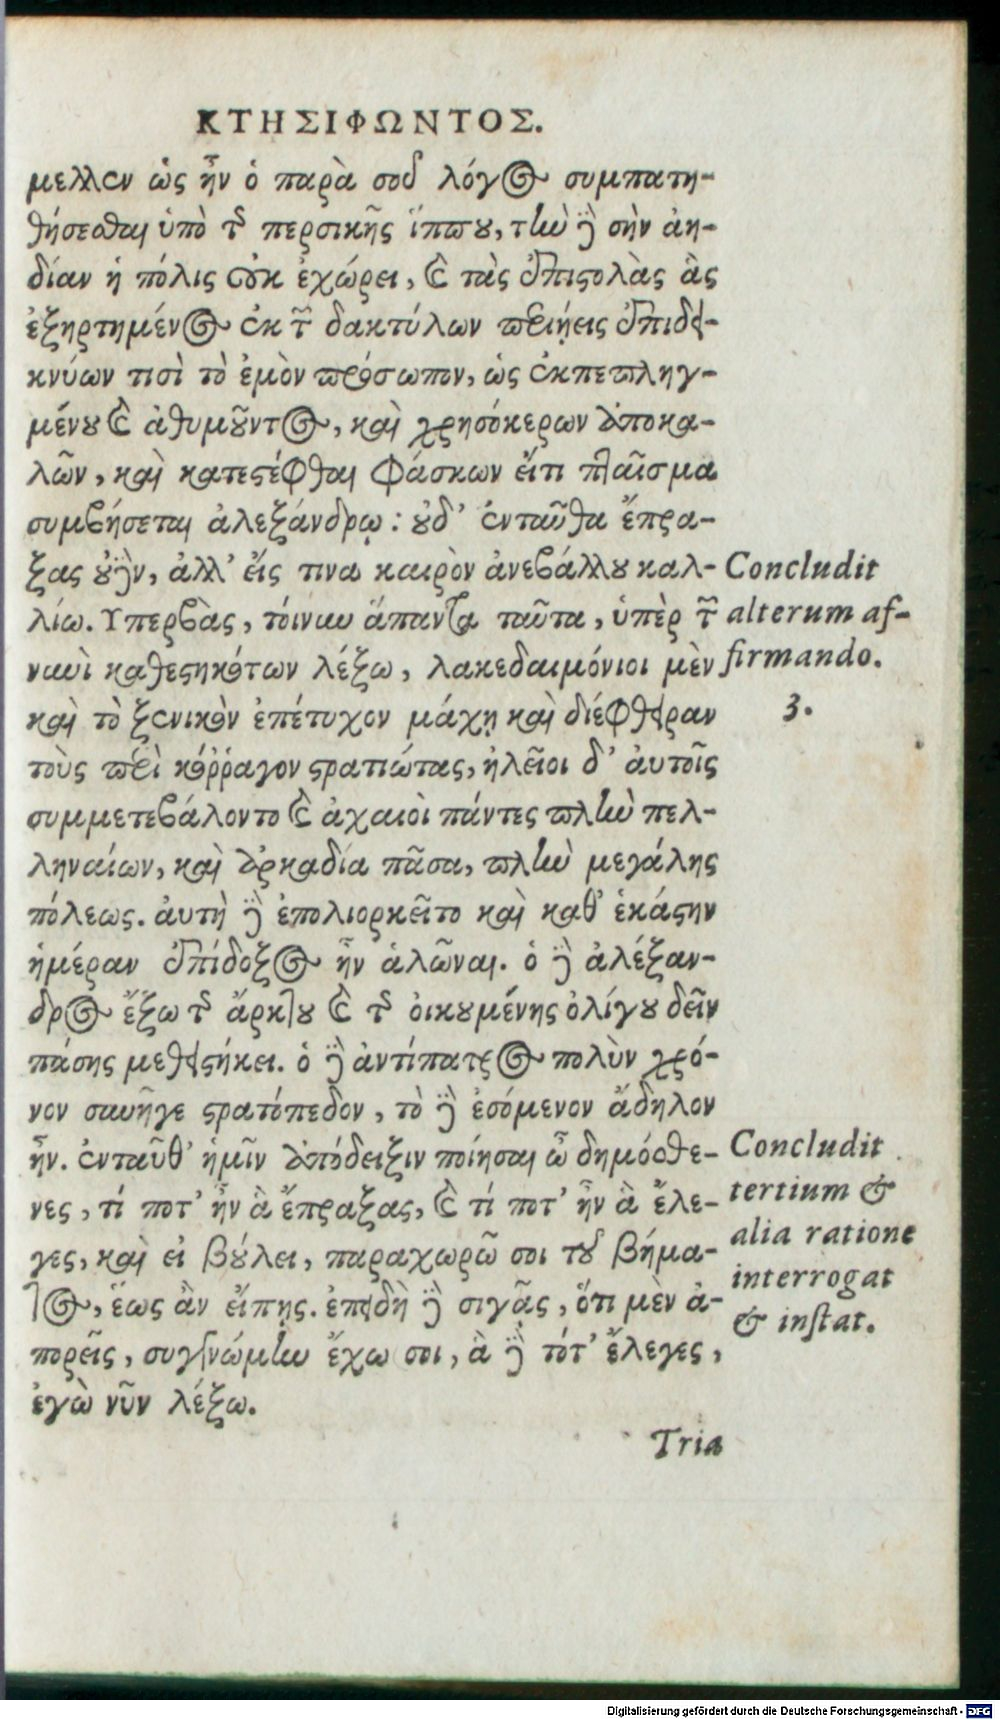 ΚΤΗΣΙΦΩΝΤΟΣ.
μελλεν ὡς ἦν ὁ παρὰ σοῦ λόγος συμπατη-
θήσεσθαι ὑπὸ τῆς περσικῆς ἵππου, τὴν δὲ σὴν ἀη-
δίαν ἡ πόλις οὐκ ἐχώρει, καὶ τὰς ἐπιστολὰς ἃς
ἐξηρτημένος ἐκ τῶν δακτύλων περιῄεις ἐπιδει-
κνύων τισὶ τὸ ἐμὸν πρόσωπον, ὡς ἐκπεπληγ-
μένου καὶ ἀθυμοῦντος, καὶ χρησόκερων ἀποκα-
λῶν, καὶ κατεστέφθαι φάσκων εἴτι πταῖσμα
συμβήσεται ἀλεξάνδρῳ: οὐδ' ἐνταῦθα ἔπρα-
ξας οὐδὲν, ἀλλ' εἴς τινα καιρὸν ἀνεβάλλου καλ-
λίω. Υπερβὰς, τοίνυν ἅπαντα ταῦτα, ὑπὲρ τῶν
νυνὶ καθεστηκότων λέξω, λακεδαιμόνιοι μὲν
καὶ τὸ ξενικὸν ἐπέτυχον μάχῃ καὶ διέφθειραν
τοὺς περὶ κόῤῥαγον στρατιώτας, ἠλεῖοι δ' αὐτοῖς
συμμετεβάλοντο καὶ ἀχαιοὶ πάντες πλὴν πελ-
ληναίων, καὶ ἀρκαδία πᾶσα, πλὴν μεγάλης
πόλεως. αὐτὴ δὲ ἐπολιορκεῖτο καὶ καθ' ἑκάστην
ἡμέραν ἐπίδοξος ἦν ἁλῶναι. ὁ δὲ ἀλέξαν-
δρος ἔξω τῆς ἄρκτου καὶ τῆς οἰκουμένης ὀλίγου δεῖν
πάσης μεθειστήκει. ὁ δὲ ἀντίπατρος πολὺν χρό-
νον συνῆγε στρατόπεδον, τὸ δὲ ἐσόμενον ἄδηλον
ἦν. ἐνταῦθ' ἡμῖν ἀπόδειξιν ποίησαι ὦ δημόσθε-
νες, τί ποτ' ἦν ἃ ἔπραξας, καὶ τί ποτ' ἦν ἃ ἔλε-
γες, καὶ εἰ βούλει, παραχωρῶ σοι τοῦ βήμα-
τος, ἕως ἂν εἴπῃς. ἐπειδὴ δὲ σιγᾷς, ὅτι μὲν ἀ-
πορεῖς, συγγνώμην ἔχω σοι, ἃ δὲ τότ' ἔλεγες,
ἐγὼ νῦν λέξω.
Concludit
alterum af-
firmando.
3.
Concludit
tertium &
alia ratione
interrogat
& instat.
Tria
Digitalisierung gefördert durch die Deutsche Forschungsgemeinschaft - DFG